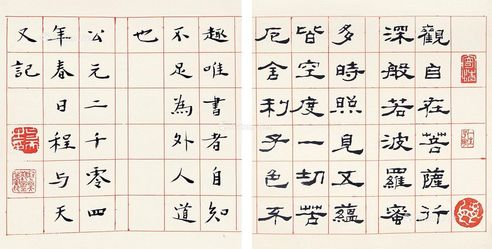 觀自在菩薩行
深般若波羅蜜
多時照見五蘊
皆空度一切苦
厄舍利子色不
趣唯書者自知
不足為外人道
也
公元二千零四
年春日程与天
又記